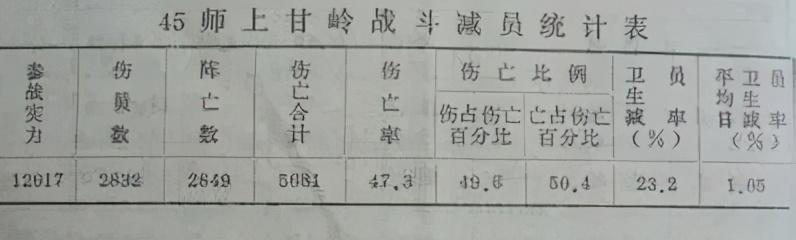 45师上甘岭战斗减员统计表
参战实力
伤员数
阵亡数
伤亡合计
伤亡率
伤亡比例
伤占伤亡百分比
亡占伤亡百分比
卫生减员率(%)
平均日卫生减员率(%)
12017 2832 2849 5681 47.3 49.6 50.4 23.2 1.05